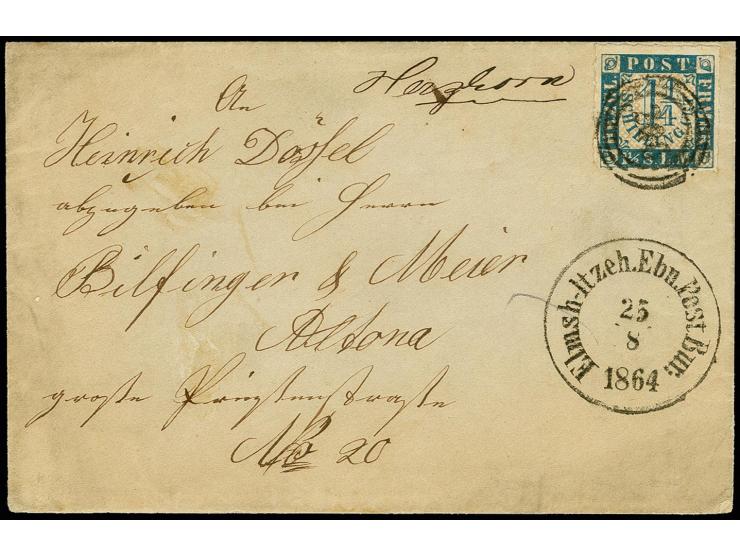 Herzhorn
An
Heinrich Dossel
abzugeben bei Herrn
Bilfinger & Meier
Altona
grosse Prinzenstrasse
No 20
POST
1 1/4
Elmsh-Itzeh.Ebn.Post.Bur.
25
8
1864